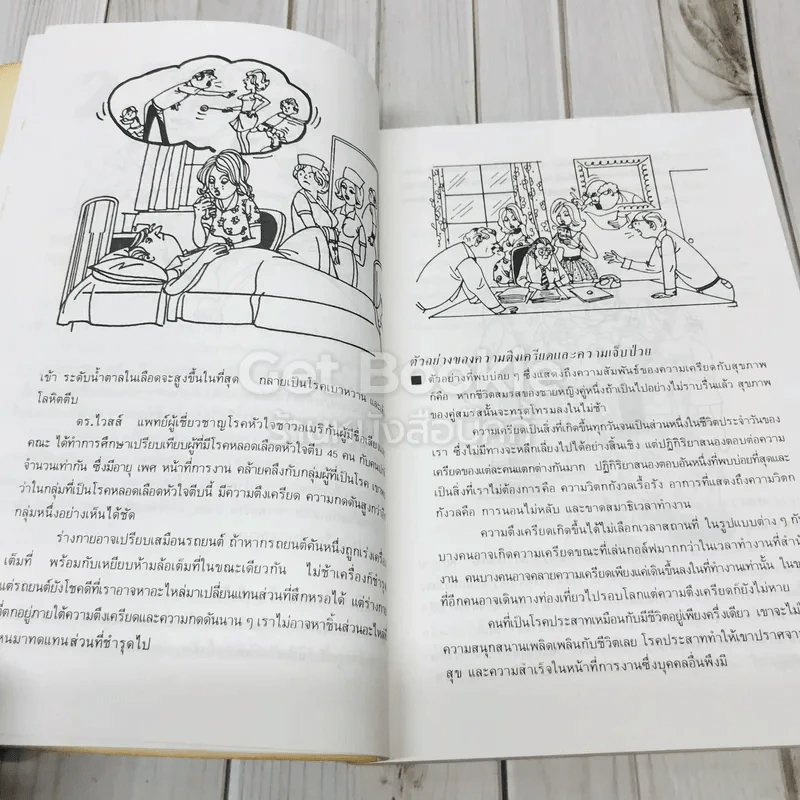 เข้า ระดับน้ำตาลในเลือดจะสูงขึ้นในที่สุด กลายเป็นโรคเบาหวาน และ
โลหิตตีบ
ดร.ไวสส์ แพทย์ผู้เชี่ยวชาญโรคหัวใจชาวอเมริกันผู้มีชื่อเสียง
คณะ ได้ทำการศึกษาเปรียบเทียบผู้ที่มีโรคหลอดเลือดหัวใจตีบ 45 คน กับคน
จำนวนเท่ากัน ซึ่งมีอายุ เพศ หน้าที่การงาน คล้ายคลึงกับกลุ่มผู้ที่เป็นโรค
ว่าในกลุ่มที่เป็นโรคหลอดเลือดหัวใจตีบนี้ มีความตึงเครียด ความกดดันสูงกว่า
กลุ่มหนึ่งอย่างเห็นได้ชัด
ร่างกายอาจเปรียบเสมือนรถยนต์ ถ้าหากรถยนต์คันหนึ่งถูกเร่งเครื่อง
เต็มที่ พร้อมกับเหยียบห้ามล้อเต็มที่ในขณะเดียวกัน ไม่ช้าเครื่องก็ชำรุด
แต่รถยนต์ยังโชคดีที่เราอาจหาอะไหล่มาเปลี่ยนแทนส่วนที่สึกหรอได้ แต่ร่างกาย
ที่ตกอยู่ภายใต้ความตึงเครียดและความกดดันนาน ๆ เราไม่อาจหาชิ้นส่วนอะไหล่
หนมาทดแทนส่วนที่ชำรุดไป
ตัวอย่างของความตึงเครียดและความเจ็บป่วย
■ ตัวอย่างที่พบบ่อย ๆ ซึ่งแสดงถึงความสัมพันธ์ของความเครียดกับสุขภาพ
ก็คือ หากชีวิตสมรสของชายหญิงคู่หนึ่งถ้าเป็นไปอย่างไม่ราบรื่นแล้ว สุขภาพ
ของคู่สมรสนั้นจะทรุดโทรมลงในไม่ช้า
ความเครียดเป็นสิ่งที่เกิดขึ้นทุกวันจนเป็นส่วนหนึ่งในชีวิตประจำวันของ
เรา ซึ่งไม่มีทางจะหลีกเลี่ยงไปได้อย่างสิ้นเชิง แต่ปฏิกิริยาสนองตอบต่อความ
เครียดของแต่ละคนแตกต่างกันมาก ปฏิกิริยาสนองตอบอันหนึ่งที่พบบ่อยที่สุดและ
เป็นสิ่งที่เราไม่ต้องการคือ ความวิตกกังวลเรื้อรัง อาการที่แสดงถึงความวิตก
กังวลคือ การนอนไม่หลับ และขาดสมาธิเวลาทำงาน
ความตึงเครียดเกิดขึ้นได้ไม่เลือกเวลาสถานที่ ในรูปแบบต่าง ๆ กัน
บางคนอาจเกิดความเครียดขณะที่เล่นกอล์ฟมากกว่าในเวลาทำงานที่สำนัก
งาน คนบางคนอาจคลายความเครียดเพียงแค่เดินขึ้นลงในที่ทำงานเท่านั้น ในขณะ
ที่อีกคนอาจเดินทางท่องเที่ยวไปรอบโลกแต่ความตึงเครียดก็ยังไม่หาย
คนที่เป็นโรคประสาทเหมือนกับมีชีวิตอยู่เพียงครึ่งเดียว เขาจะไม่
ความสนุกสนานเพลิดเพลินกับชีวิตเลย โรคประสาททำให้เขาปราศจาก
สุข และความสำเร็จในหน้าที่การงานซึ่งบุคคลอื่นพึงมี